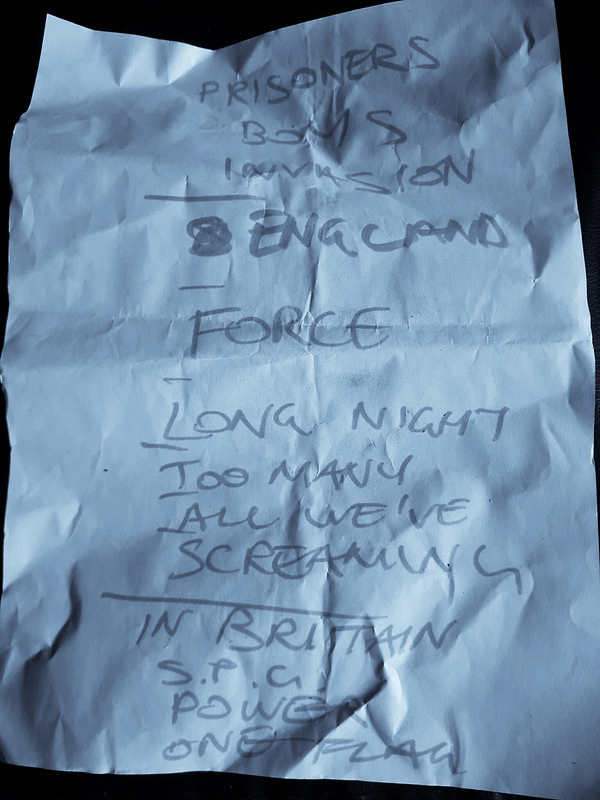 PRISONERS
BOMS
INVASION
ENGLAND
FORCE
LONG NIGHT
TOO MANY
ALL WE'VE
SCREAMING
IN BRITTAIN
S.P.G.
POWER
ONE FLAG